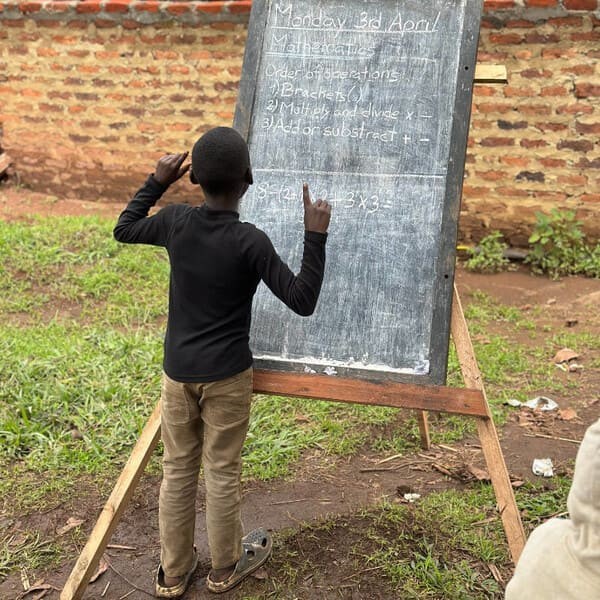 Monday 3rd April
Mathematics
Order of operations
1) Brackets()
2) Multiply and divide × —
3) Add or substract + -
3×3=